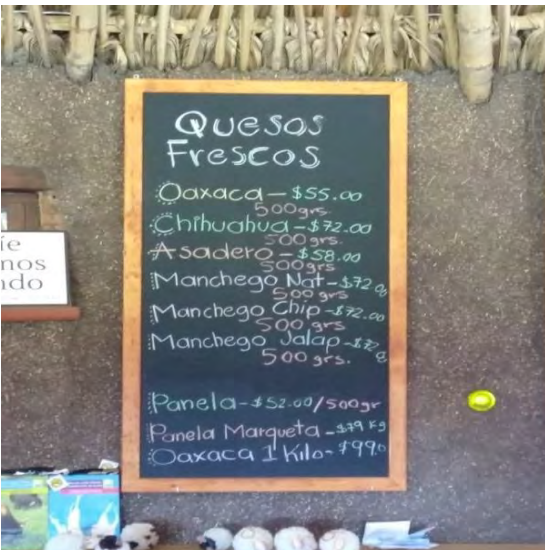 Quesos
Frescos
Oaxaca - $55.00
500grs.
Chihuahua - $72.00
500grs.
Asadero - $58.00
500grs
Manchego Nat - $72.00
500grs
Manchego Chip - $72.00
500 grs
Manchego Jalap - $72.
500 grs.
Panela - $52.00/500gr
Panela Marqueta - $79 Kg
Oaxaca 1 Kilo - $99.0
íe
nos
ndo